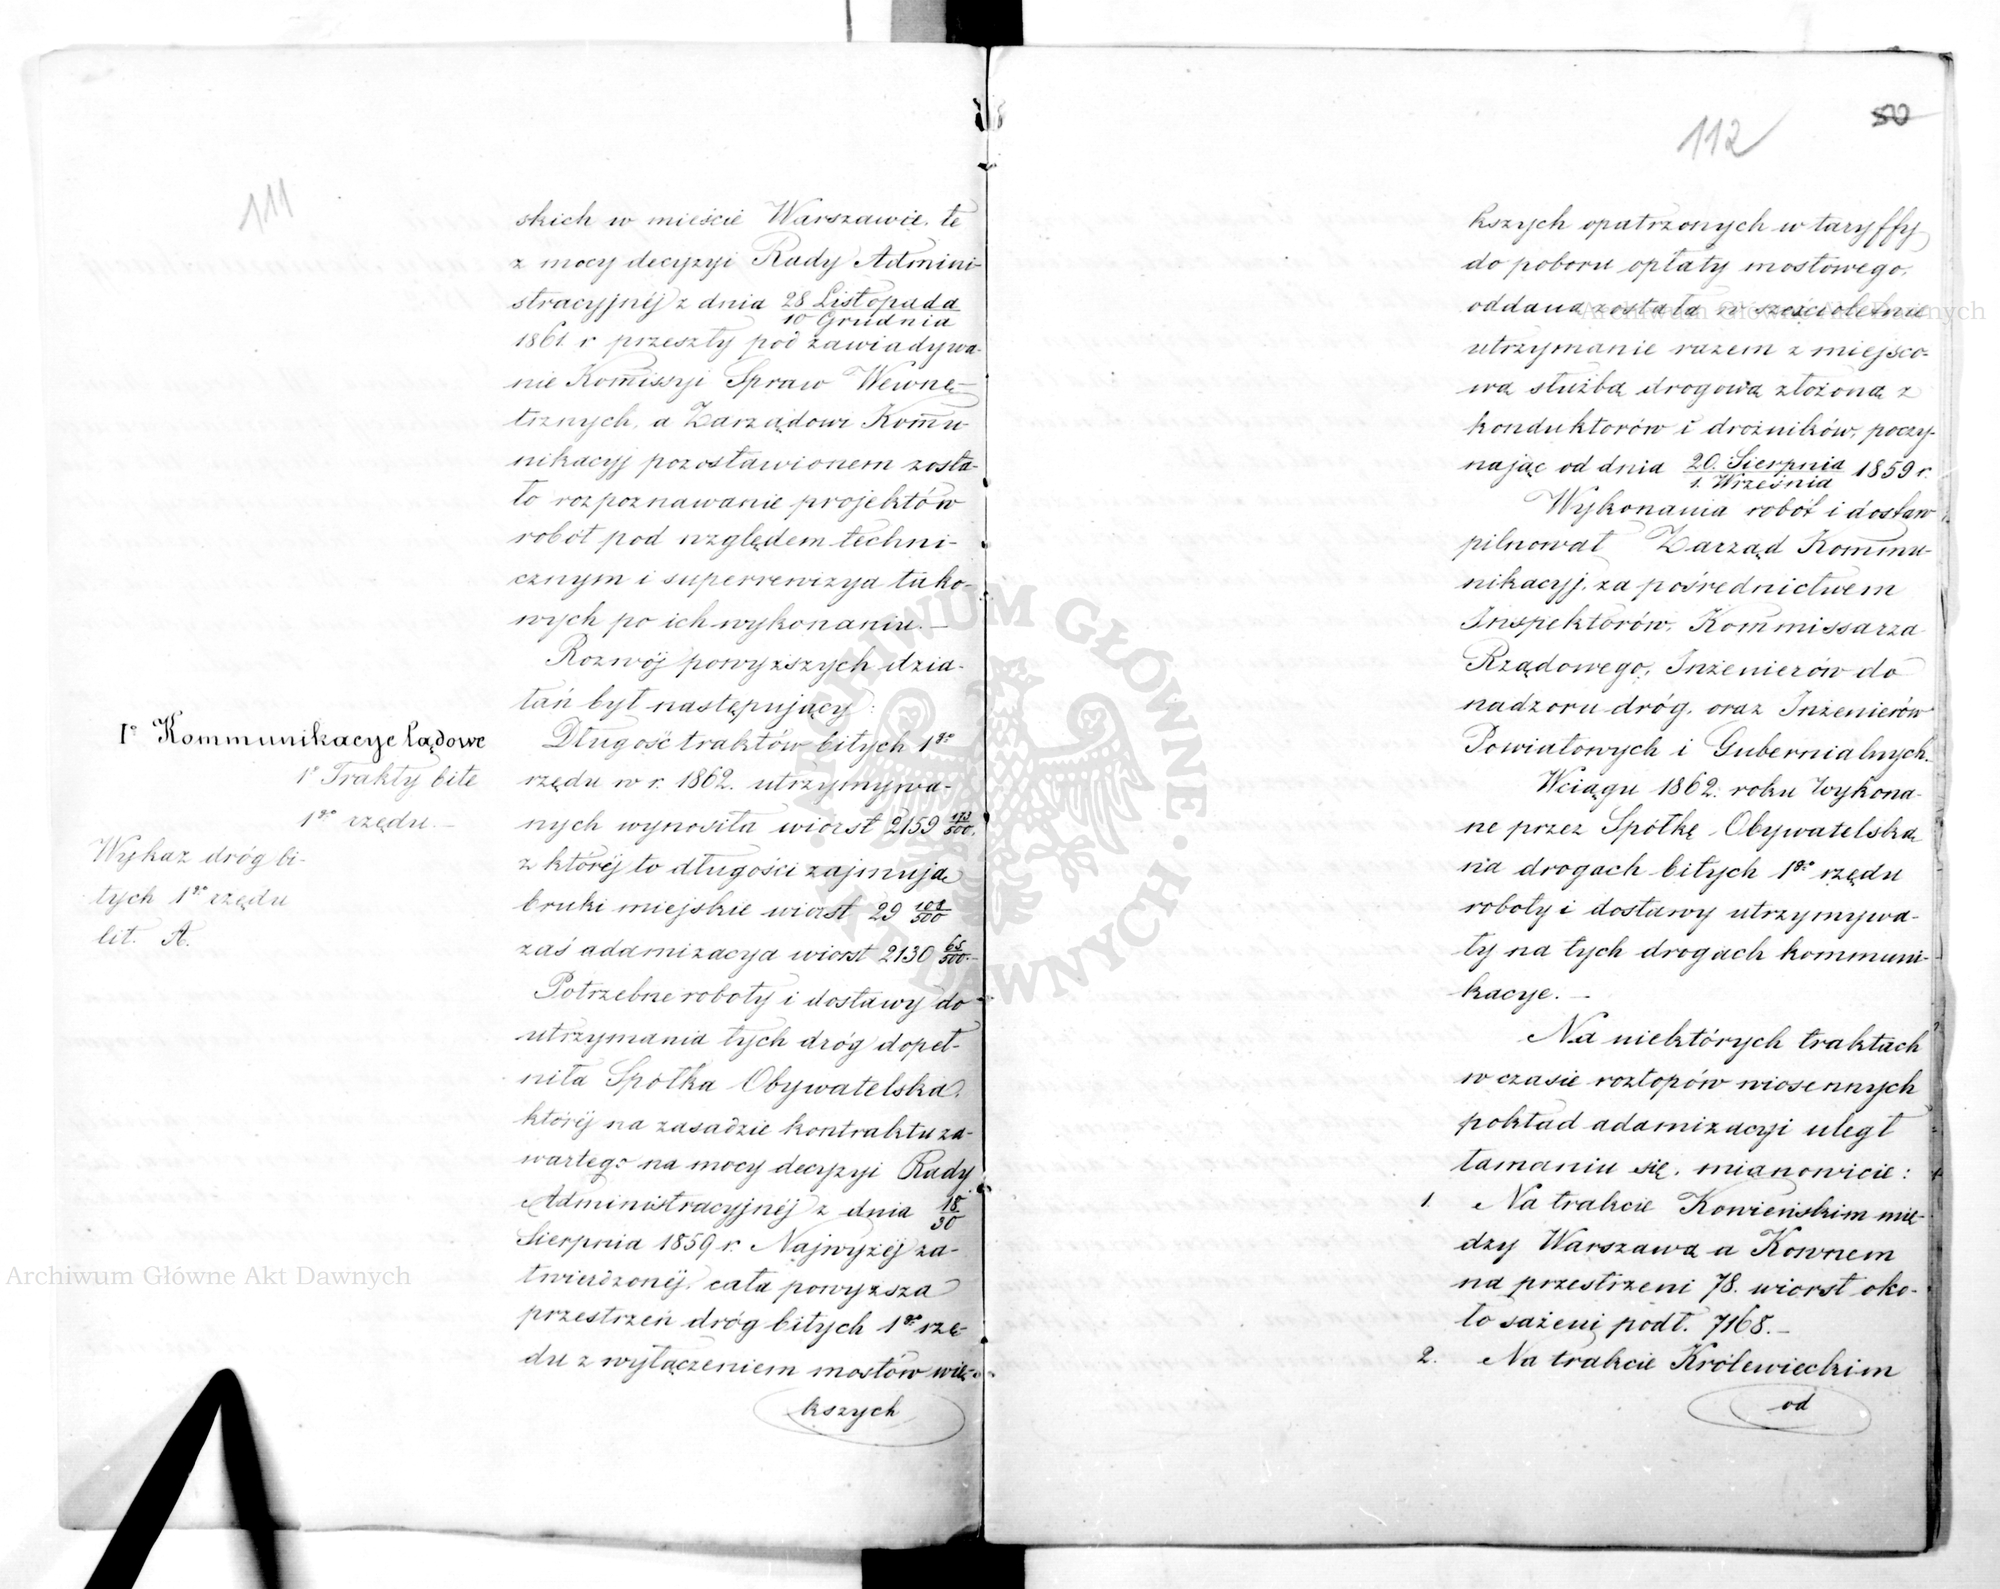 111
skich w mieście Warszawie, te
z mocy decyzyi Rady Admini-
stracyjnéj z dnia 28 Listopada / 10 Grudnia
1861 r przeszły pod zawiadywa-
nie Kommissyi Spraw Wewnę-
trznych, a Zarządowi Kommu-
nikacyj pozostawionem zosta-
ło rozpoznawanie projektów
robót pod względem techni-
cznym i superrewizya tako-
wych po ich wykonaniu.—
Rozwój powyższych dzia-
łań był następujący:
I° Kommunikacye lądowe
1° Trakty bite
1go rzędu.—
Wykaz dróg bi-
tych 1go rzędu
lit. A.
Długość traktów bitych 1go
rzędu w r. 1862. utrzymywa-
nych wynosiła wiorst 2159 173/500.
z któréj to długości zajmują
bruki miejskie wiorst 29 108/500
zaś adamizacya wiorst 2130 65/500.—
Potrzebne roboty i dostawy do
utrzymania tych dróg dopeł-
niła Spółka Obywatelska,
któréj na zasadzie kontraktu za-
wartego na mocy decyzyi Rady
Administracyjnéj z dnia 18/30
Sierpnia 1859 r. Najwyżéj za-
twierdzonéj, cała powyższa
przestrzeń dróg bitych 1go rzę-
du z wyłączeniem mostów wię-
kszych
112
50
kszych opatrzonych w taryffy
do poboru opłaty mostowego,
oddana została w sześcioletnie
utrzymanie razem z miejsco-
wą służbą drogową złożoną z
konduktorów i drożników, poczy-
nając od dnia 20. Sierpnia / 1. Września 1859 r.
Wykonania robót i dostaw
pilnował Zarząd Kommu-
nikacyj, za pośrednictwem
Inspektorów, Kommissarza
Rządowego, Inżenierów do
nadzoru dróg, oraz Inżenierów
Powiatowych i Gubernialnych.
Wciągu 1862. roku wykona-
ne przez Spółkę Obywatelską
na drogach bitych 1go rzędu
roboty i dostawy utrzymywa-
ły na tych drogach kommuni-
kacye.—
Na niektórych traktach
w czasie roztopów wiosennych
pokład adamizacyi uległ
łamaniu się, mianowicie:
1. Na trakcie Kowieńskim mię-
dzy Warszawą a Kownem
na przestrzeni 78. wiorst oko-
ło sażeni podł. 7168.—
2. Na trakcie Królewieckim
od
Archiwum Główne Akt Dawnych
Archiwum Główne Akt Dawnych
· ARCHIWUM GŁÓWNE · AKT DAWNYCH